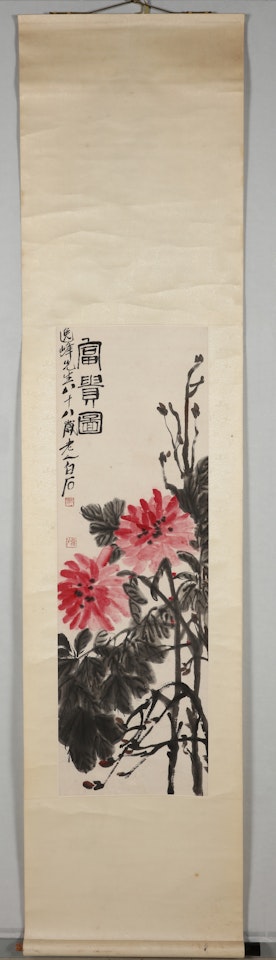 富貴圖
逸峰先生八十八歲老人白石